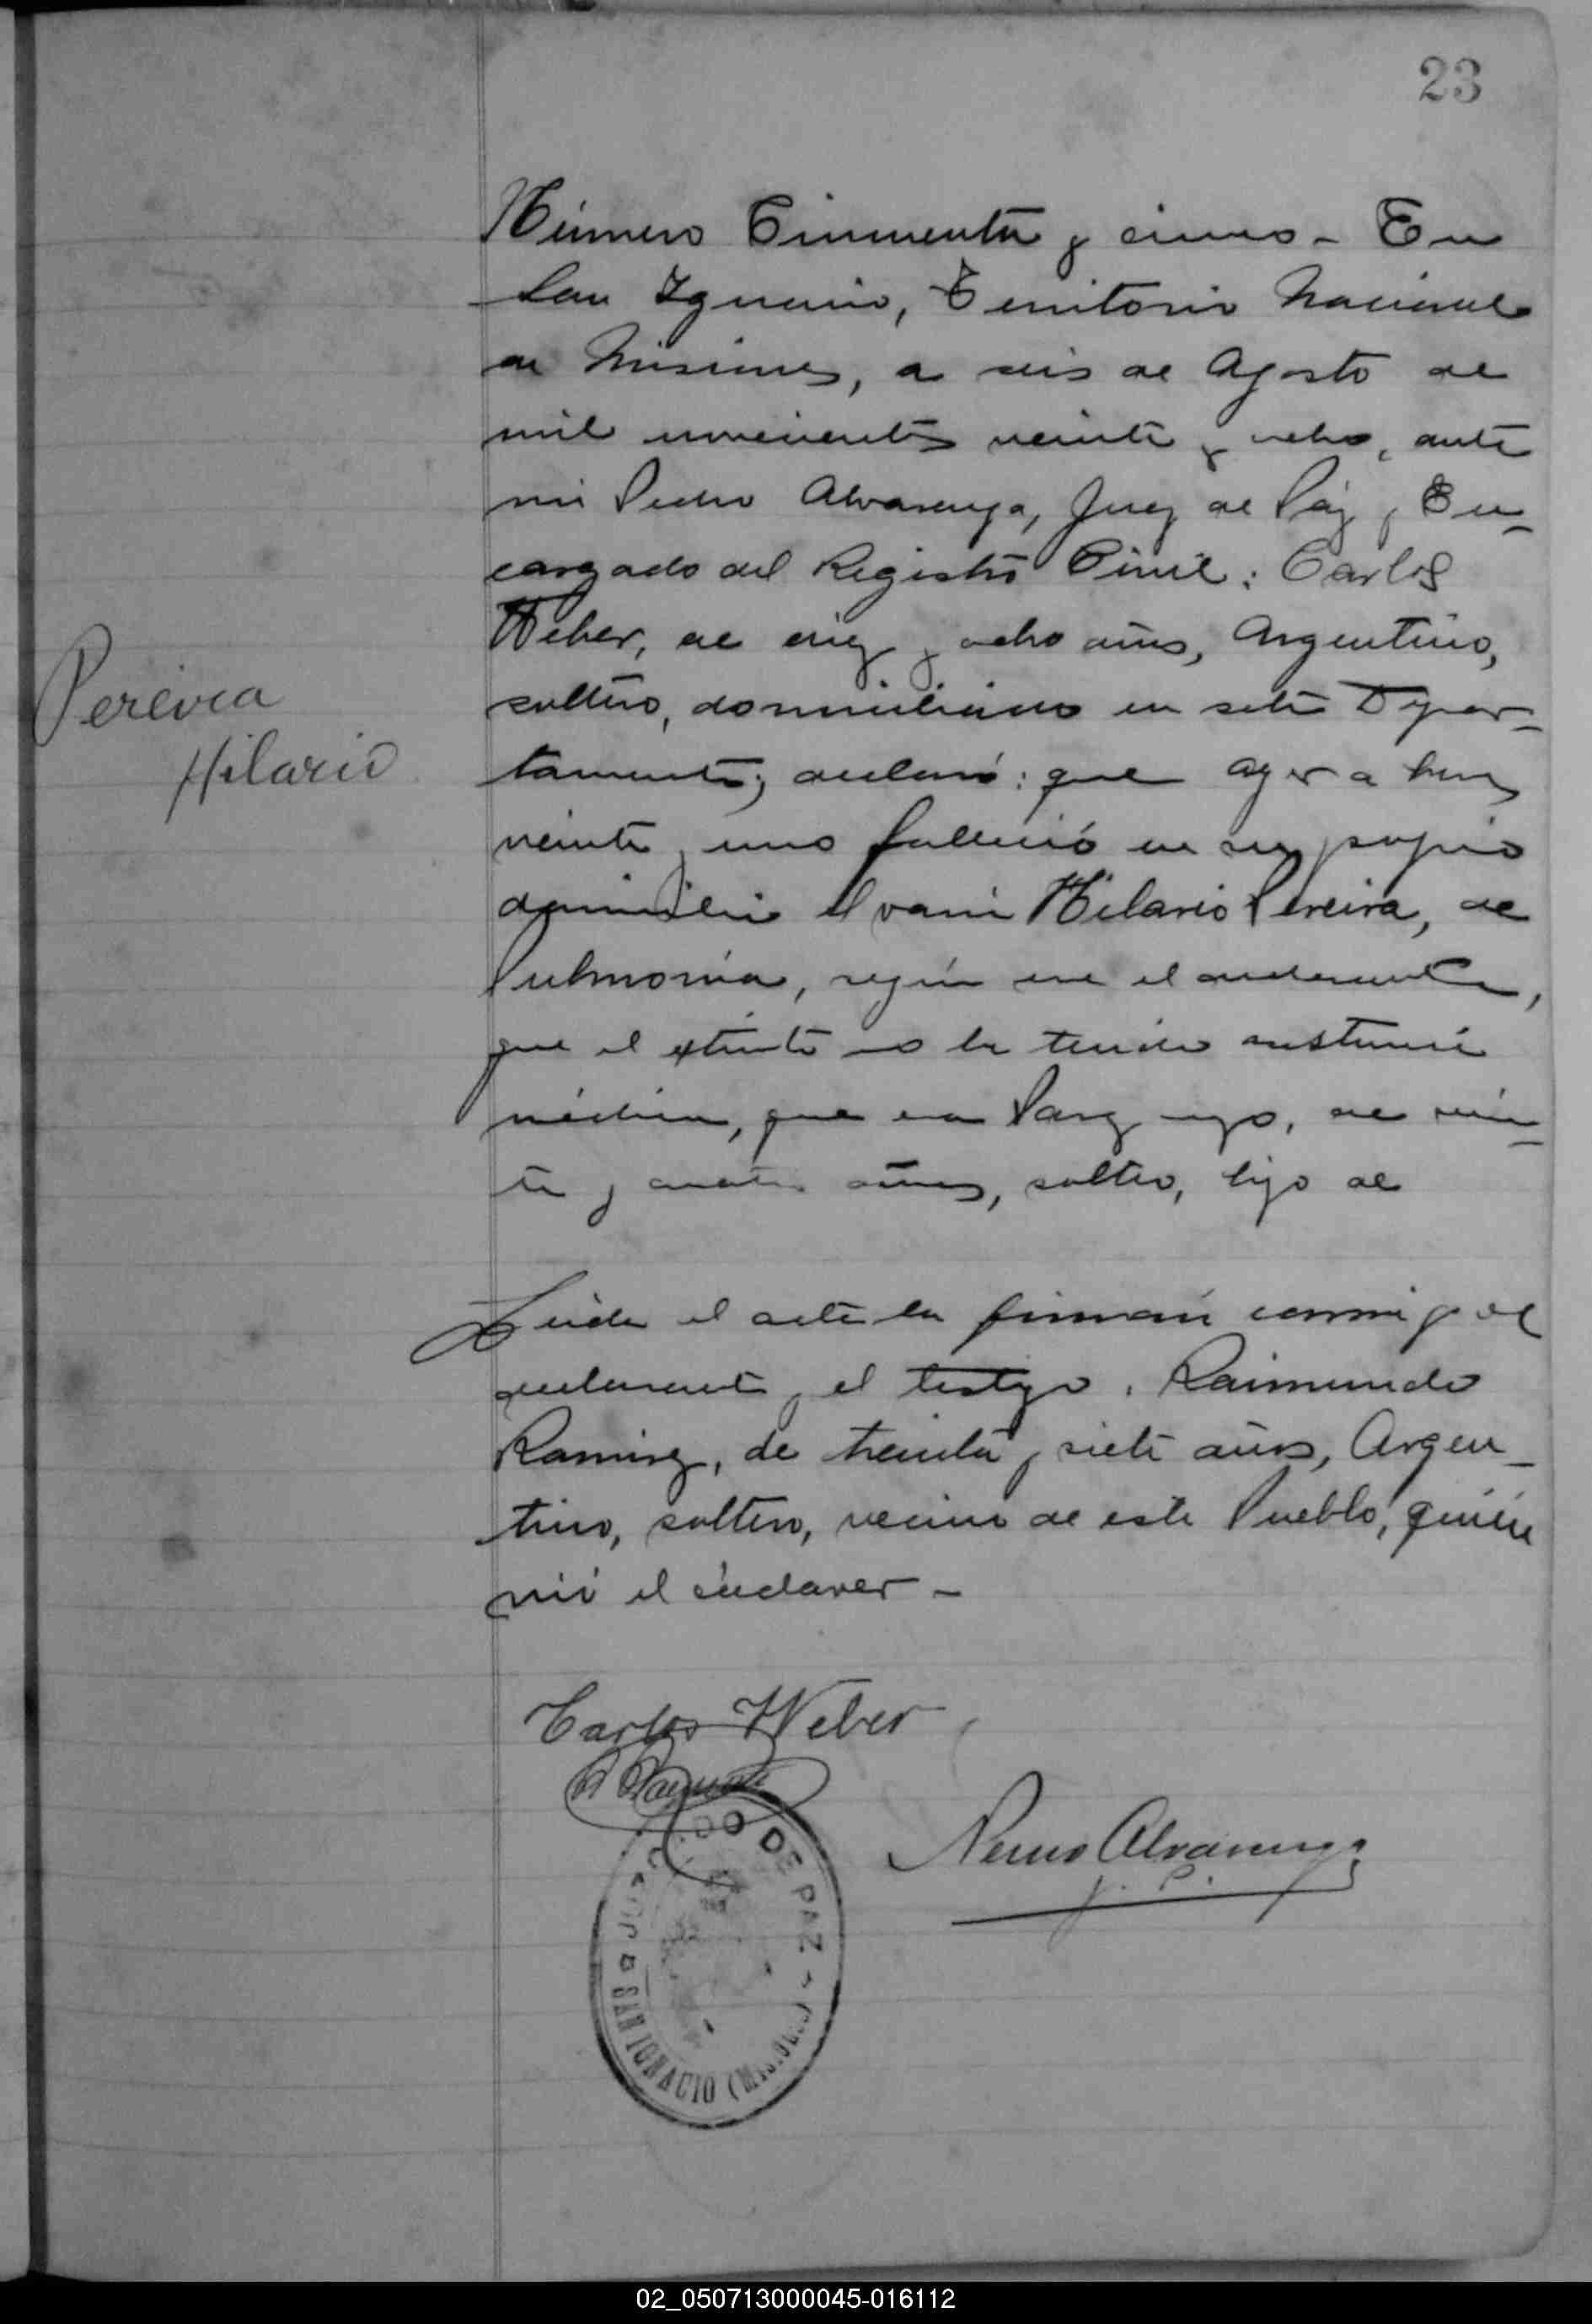 23
Número Cincuenta y cinco - En
San Ignacio, Territorio Nacional
de Misiones, a seis de Agosto de
mil novecientos veinte y ocho, ante
mi Pedro Alvarenga, Juez de Páz y En-
cargado del Registro Civil: Carlos
Weber, de diez y ocho años, Argentino,
soltero, domiciliado en este Depar-
tamento; declaró: que ayer a horas
veinte y uno falleció en su propio
domicilio el varón Hilario Pereira, de
Pulmonía, según dice el declarante,
que el extinto no ha tenido asistencia
médica, que era Paraguayo, de vein-
te y cuatro años, soltero, hijo de
Pereira
Hilario
Leida el acta la firman conmigo el
declarante y el testigo: Raimundo
Ramirez, de treinta y siete años, Argen-
tino, soltero, vecino de este Pueblo, quién
vió el cadaver -
Carlos Weber
Alvarenga
J. P.
DO DE PAZ
SAN IGNACIO
02_050713000045-016112